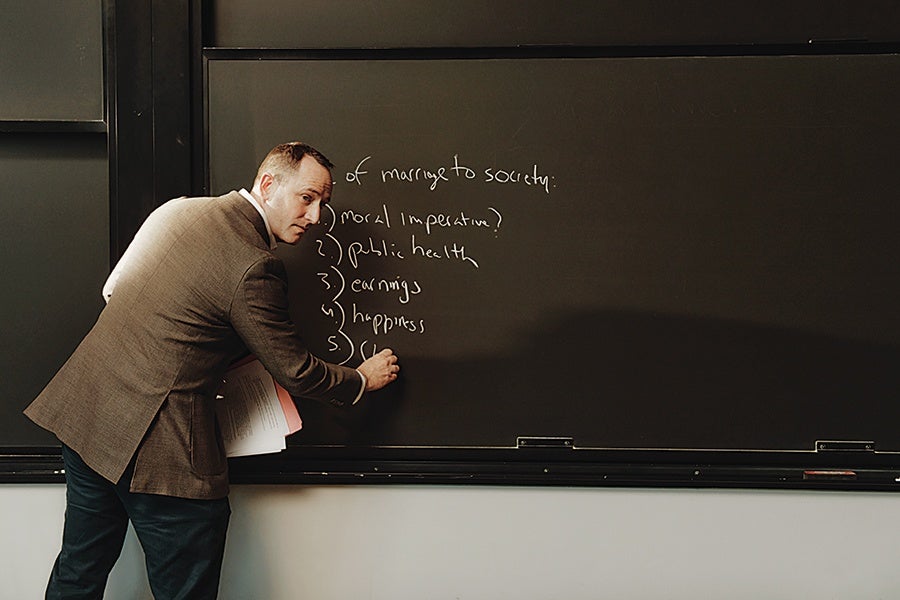 of marriage to society:
1.) moral imperative?
2.) public health
3.) earnings
4.) happiness
5.)